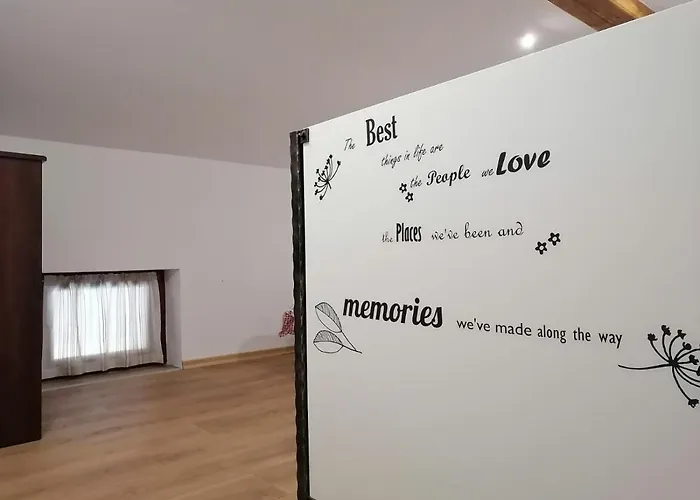 The Best
things in life are
the People we Love
the Places we've been and
memories we've made along the way